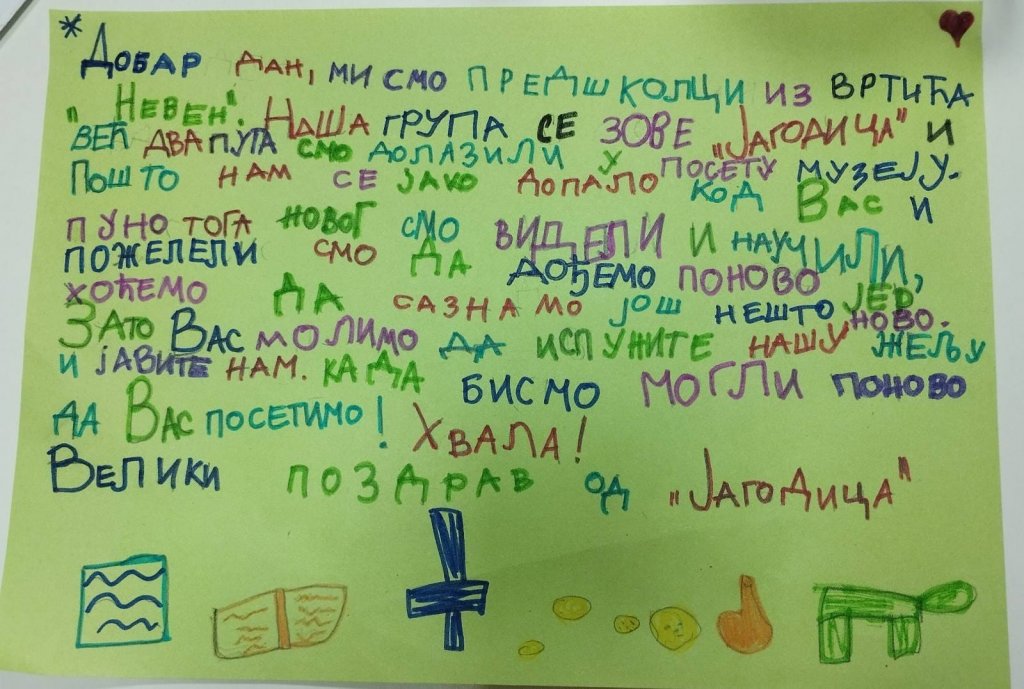 Добар дан, ми смо предшколци из вртића
"Невен". Наша група се зове "Јагодица" и
већ два пута смо долазили у посету музеју.
Пошто нам се јако допало код Вас и
пуно тога новог смо видели и научили,
пожелели смо да дођемо поново
хоћемо да сазнамо још нешто
ново.
Зато Вас молимо да испужите нашу жељу
и јавите нам. када бисмо могли поново
да Вас посетимо! Хвала!
Велики поздрав од "Јагодица"